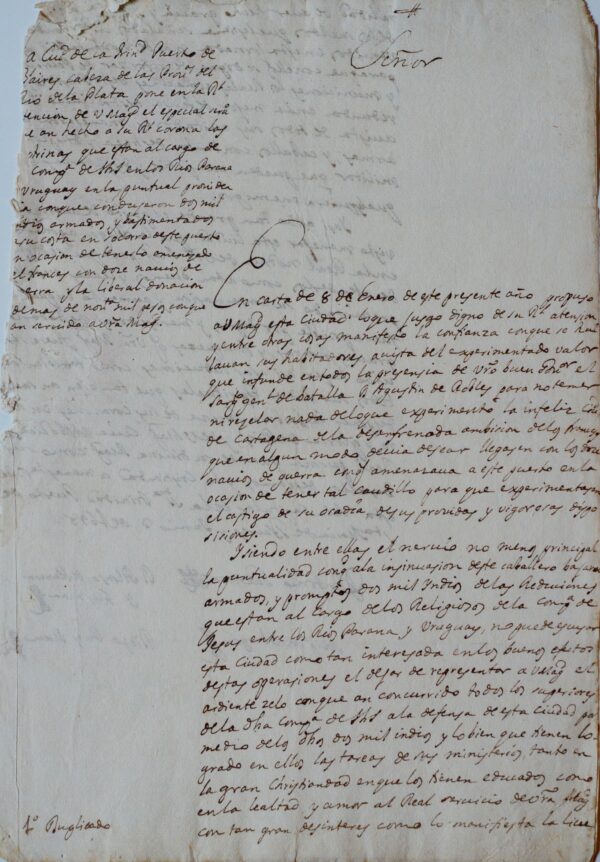 Señor
a Ciud de la Trind Puerto de
Aires cabeza de las Prouˢ del
Rio de la Plata pone en la Rˡ
tencion de V Magᵈ el especial
e an hecho a su Rˡ corona las
trinas que estan al cargo de
compᵃ de Jhs en los Rios Parana
Uruguay en la puntual providen
ia conque condujeron dos mil
ndios armados y bastimentados
a su costa en socorro deste puerto
n ocasion de tenerlo amenasado
el frances con dose navios de
erra y la liberal donacion
demas de nouᵗᵃ mil pesos conque
an seruido a Vrᵃ Magᵈ.
En carta de 8 de Enero de este presente año propuso
a V Magᵈ esta ciudad lo que jusgo digno de su Rˡ atension
y entre otras cosas manifesto la confianza conque se ha
llauan sus habitadores, a vista del experimentado valor
que infunde en todos la presensia de Vrō buen Gouʳ el
Sargᵗᵒ genˡ de batalla D Agustin de Robles para no temer
ni rezelar nada de lo que experimento la infeliz
de Cartagena de la desenfrenada ambision de los
que en algun modo deuia desear llegasen con los dose
nauios de guerra conq amenazaua a este puerto en la
ocasion de tener tal caudillo para que experimentasen
el castigo de su osadia, de sus prouidas y vigorosas dispo
sisiones.
I siendo entre ellas el neruio no menos principal
la puntualidad conq a la insinuasion deste caballero bajaron
armados, y promptos dos mil Indios de las Reduciones
que estan al cargo de los Religiosos de la compᵃ de
Jesus entre los Rios Parana y Uruguay, no puede escusar
esta Ciudad como tan interesada en los buenos efectos
destas operasiones el dejar de representar a V Magᵈ el
ardiente zelo conque an concurrido todos los superiores
de la dhᵃ compᵃ de Jhs a la defensa de esta Ciudad por
medio de los dhos dos mil indios y lo bien que tienen lo
grado en ellos las tareas de sus ministerios, tanto en
la gran Christiandad en que los tienen educados como
en la lealtad, y amor al Real seruicio de Vrᵃ Magᵈ
con tan gran desinteres como lo manifiesta la libe
1º Duplicado